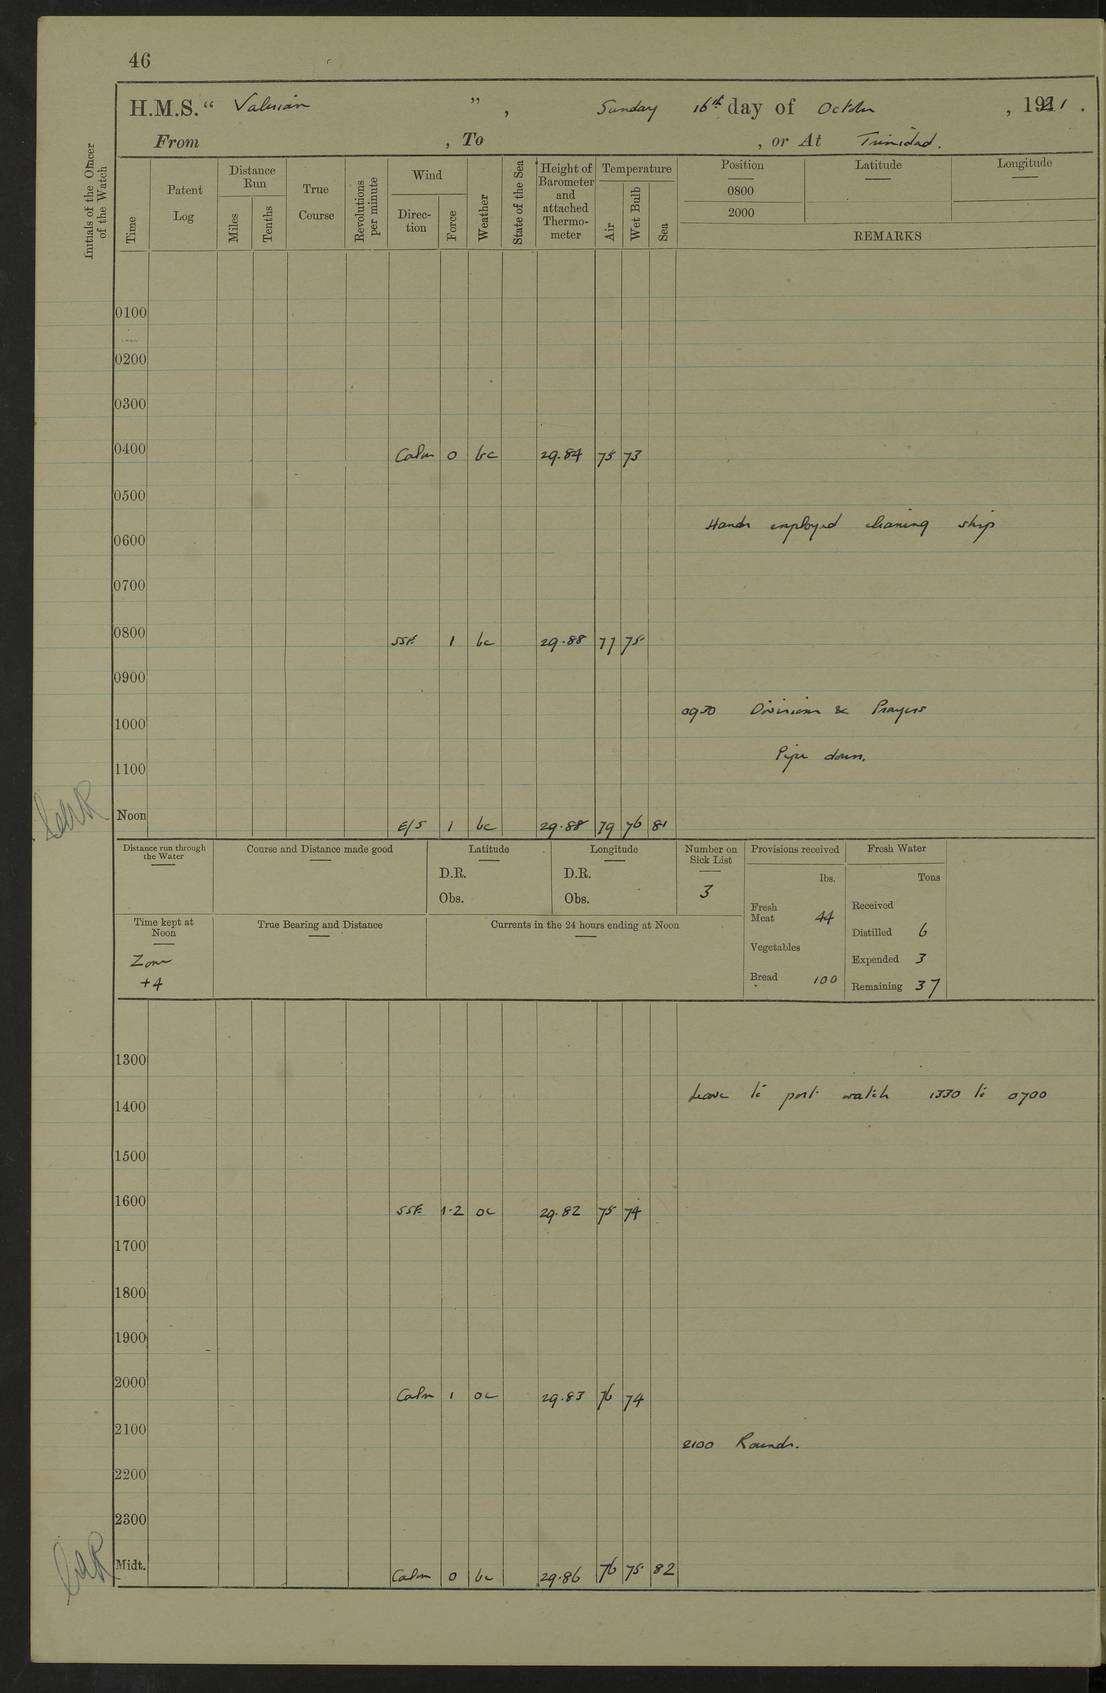 46
H.M.S. “ Valerian ” , Sunday 16th day of October , 1921 .
From , To , or At Trinidad.
Initials of the Officer of the Watch
Time
Patent Log
Distance Run
Miles
Tenths
True Course
Revolutions per minute
Wind
Direc-tion
Force
Weather
State of the Sea
Height of Barometer and attached Thermo-meter
Temperature
Air
Wet Bulb
Sea
Position
Latitude
Longitude
0800
2000
REMARKS
0100
0200
0300
0400 Calm 0 bc 29.84 75 73
0500
Hands employed cleaning ship
0600
0700
0800 SSE 1 bc 29.88 77 75
0900
0930 Divisions & Prayers
1000
Pipe down.
1100
Noon E/S 1 bc 29.88 79 76 81
Distance run through the Water
Course and Distance made good
Latitude
D.R.
Obs.
Longitude
D.R.
Obs.
Number on Sick List
3
Provisions received
lbs.
Fresh Meat 44
Vegetables
Bread 100
Fresh Water
Tons
Received
Distilled 6
Expended 3
Remaining 37
Time kept at Noon
Zone
+4
True Bearing and Distance
Currents in the 24 hours ending at Noon
1300
Leave to port watch 1330 to 0700
1400
1500
1600 SSE 1-2 oc 29.82 75 74
1700
1800
1900
2000 Calm 1 oc 29.83 76 74
2100
2100 Rounds.
2200
2300
Midt. Calm 0 bc 29.86 76 75 82